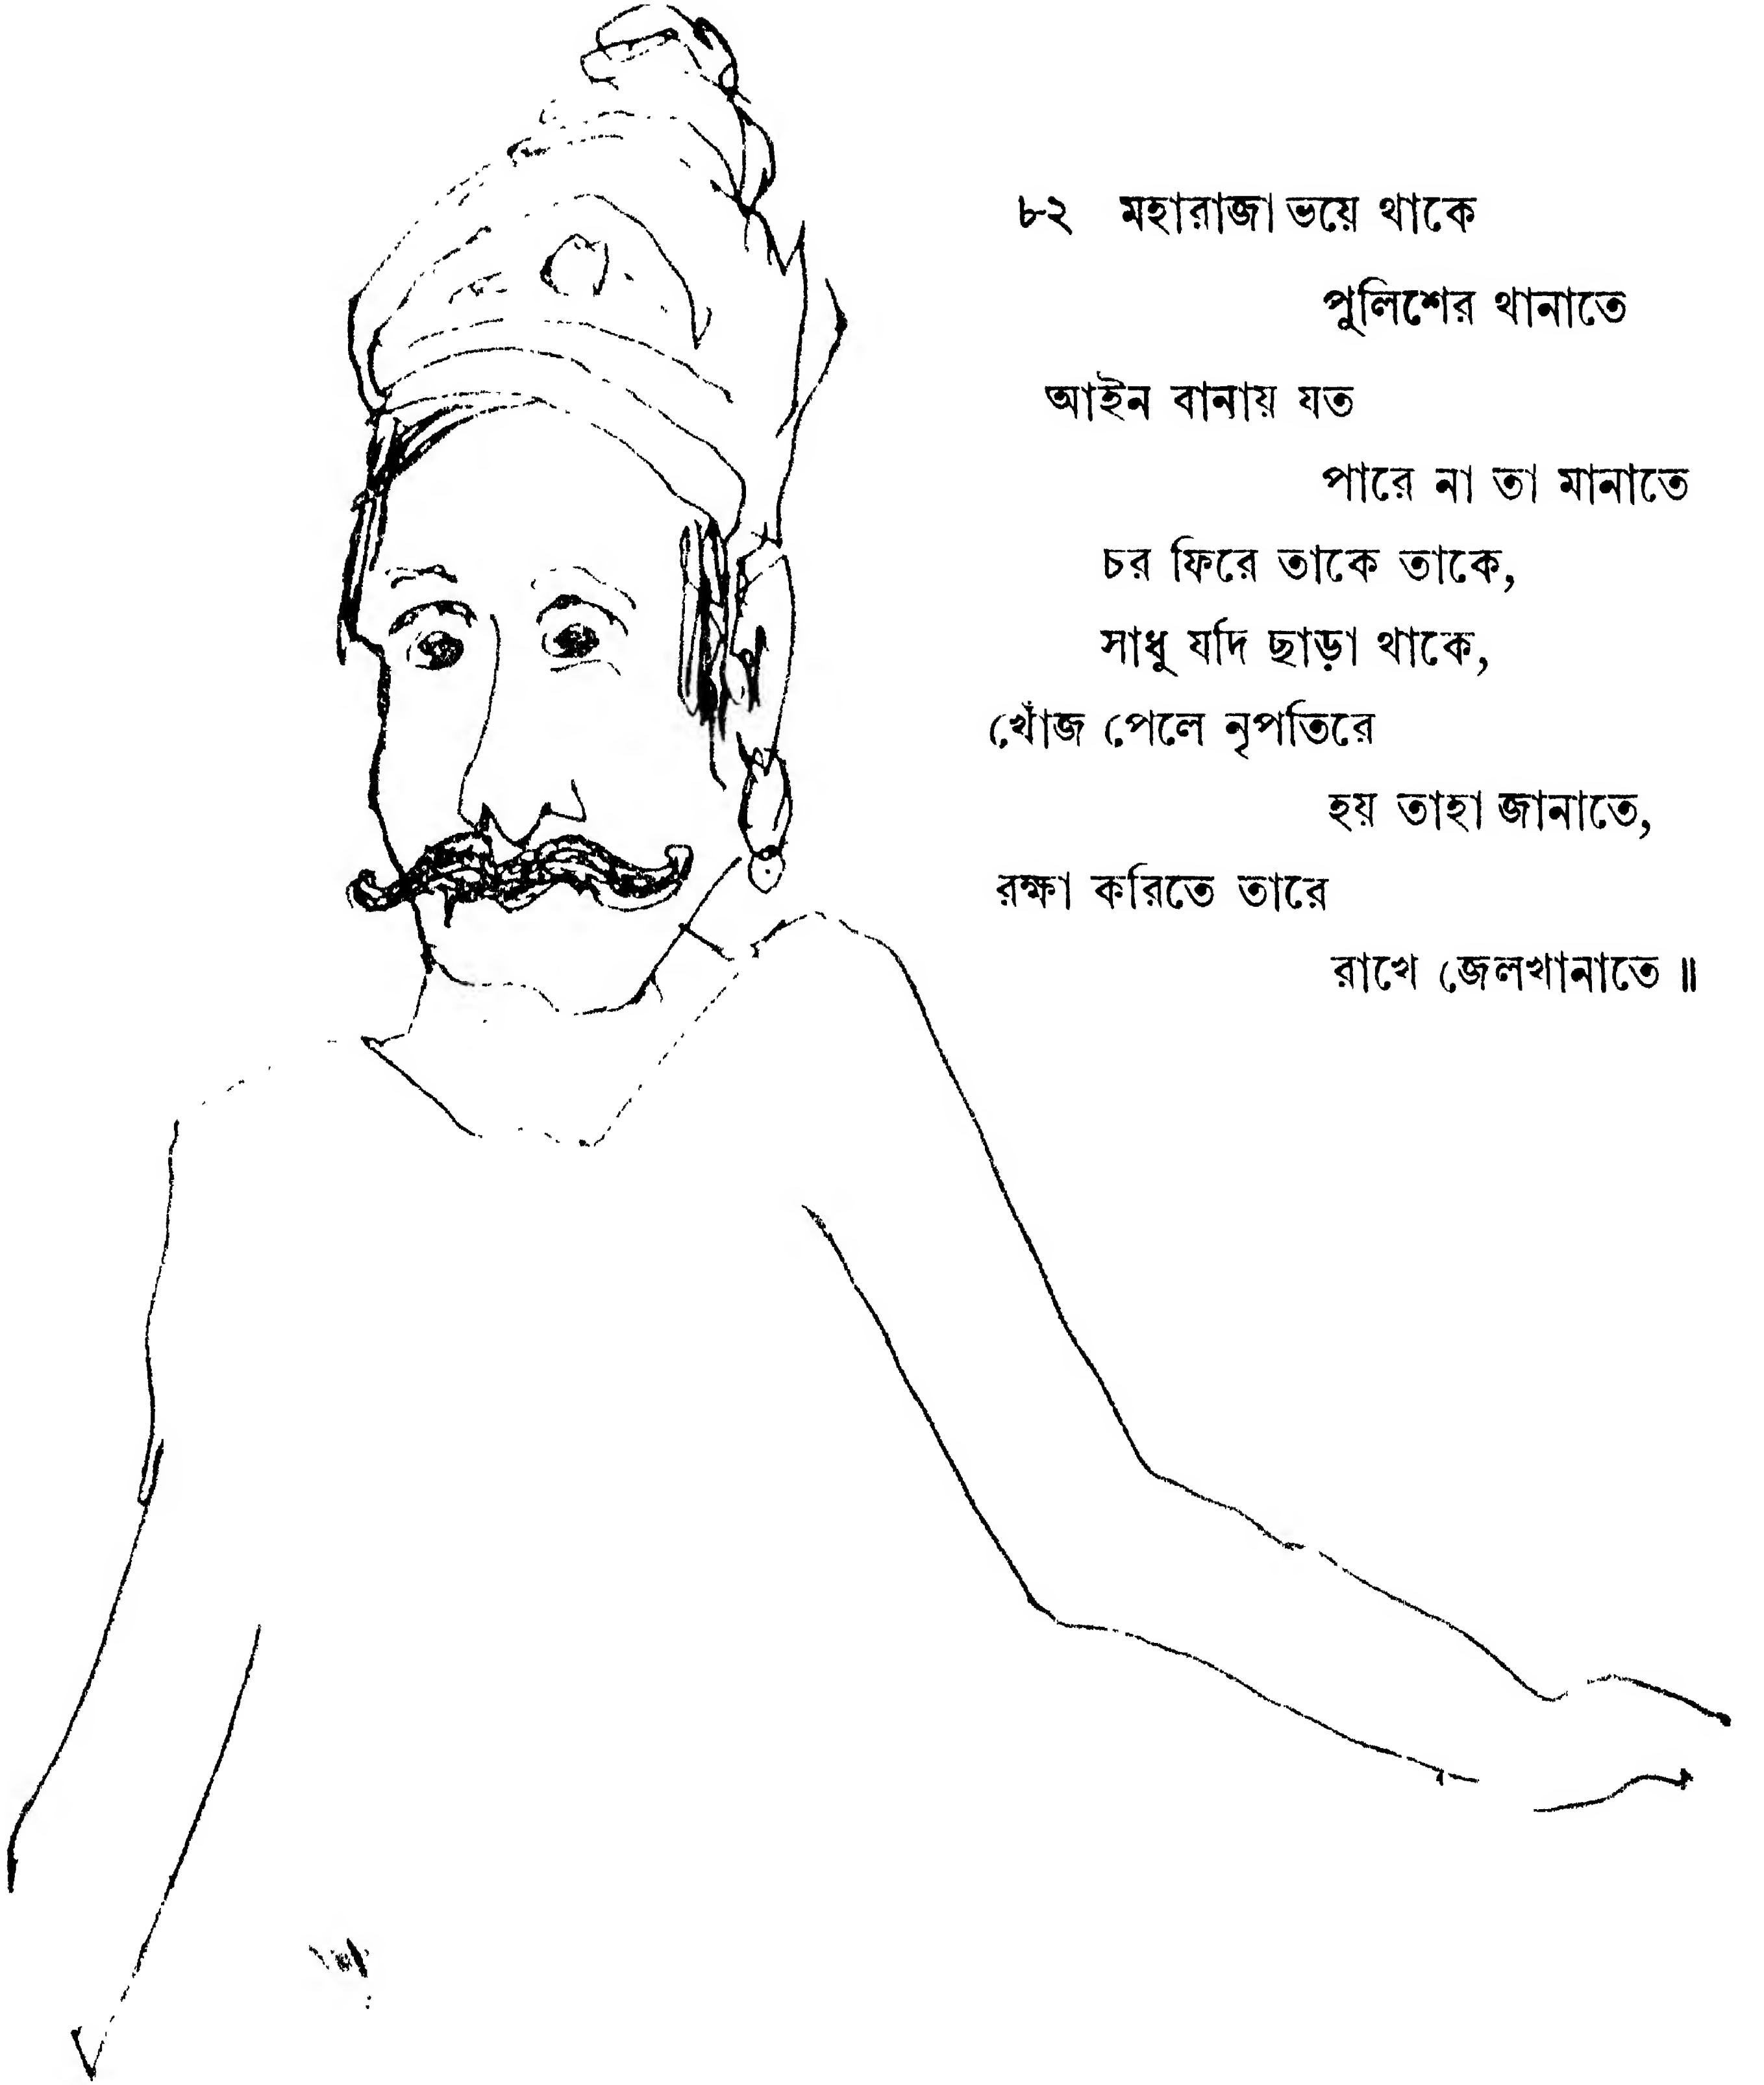 ৮২ মহারাজা ভয়ে থাকে
পুলিশের থানাতে
আইন বানায় যত
পারে না তা মানাতে
চর ফিরে তাকে তাকে,
সাধু যদি ছাড়া থাকে,
খোঁজ পেলে নৃপতিরে
হয় তাহা জানাতে,
রক্ষা করিতে তারে
রাখে জেলখানাতে ॥